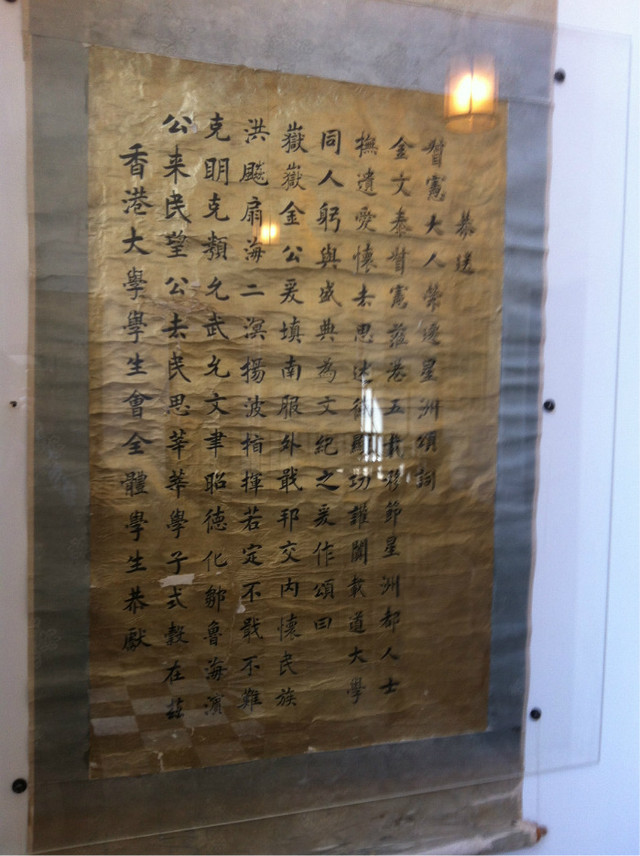 恭送
督憲大人榮遷星洲頌詞
金文泰督憲蒞港五載移節星洲都人士
撫遺愛懷去思述德功載道大學
同人躬與盛典為文紀之爰作頌曰
嶽嶽金公爰填南服外戢邦交內懷民族
洪飈扇海二溟揚波指揮若定不戢不難
克明克類允武允文聿昭德化鄒魯海濱
公来民望公去民思莘莘學子式穀在茲
香港大學學生會全體學生恭獻